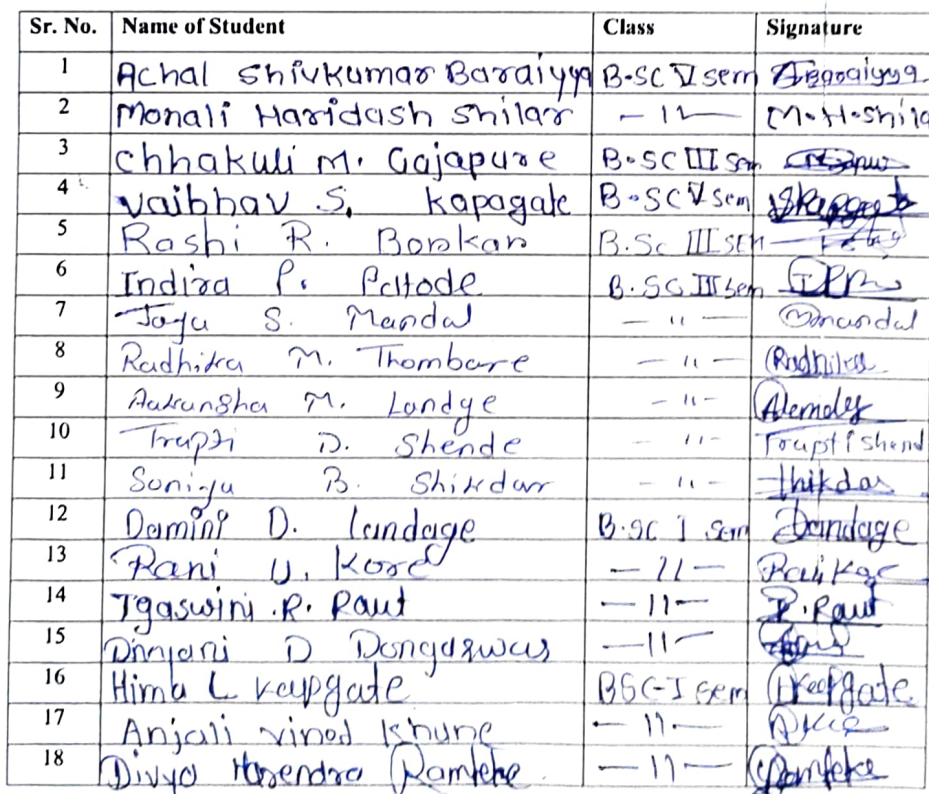 Sr. No. Name of Student Class Signature
1 Achal Shivkumar Baraiyya B.SC V sem
2 Monali Haridash Shilar — 11 — M.H.Shila
3 Chhakuli M. Gajapure B.SC III Sem
4 Vaibhav S. Kapagate B.SC V sem
5 Rashi R. Borkar B.Sc III sem
6 Indira P. B.SC III sem
7 Jaya S. Mandal — 11 — Mandal
8 Radhika M. Thombare — 11 — Radhika
9 Aakansha M. Landge — 11 —
10 Trupti D. Shende — 11 — Trupti Shend
11 Soniya B. Shikdar — 11 — Shikdar
12 Damini D. landage B.SC I Sem Dandage
13 Rani U. Kore — 11 —
14 Tgaswini .R. Raut — 11 — R. Raut
15 D — 11 —
16 Hima L Kapgate BSC-I Sem Kapgate
17 Anjali vinod Khune — 11 —
18 Divya Harendra Ramteke — 11 — Ramteke